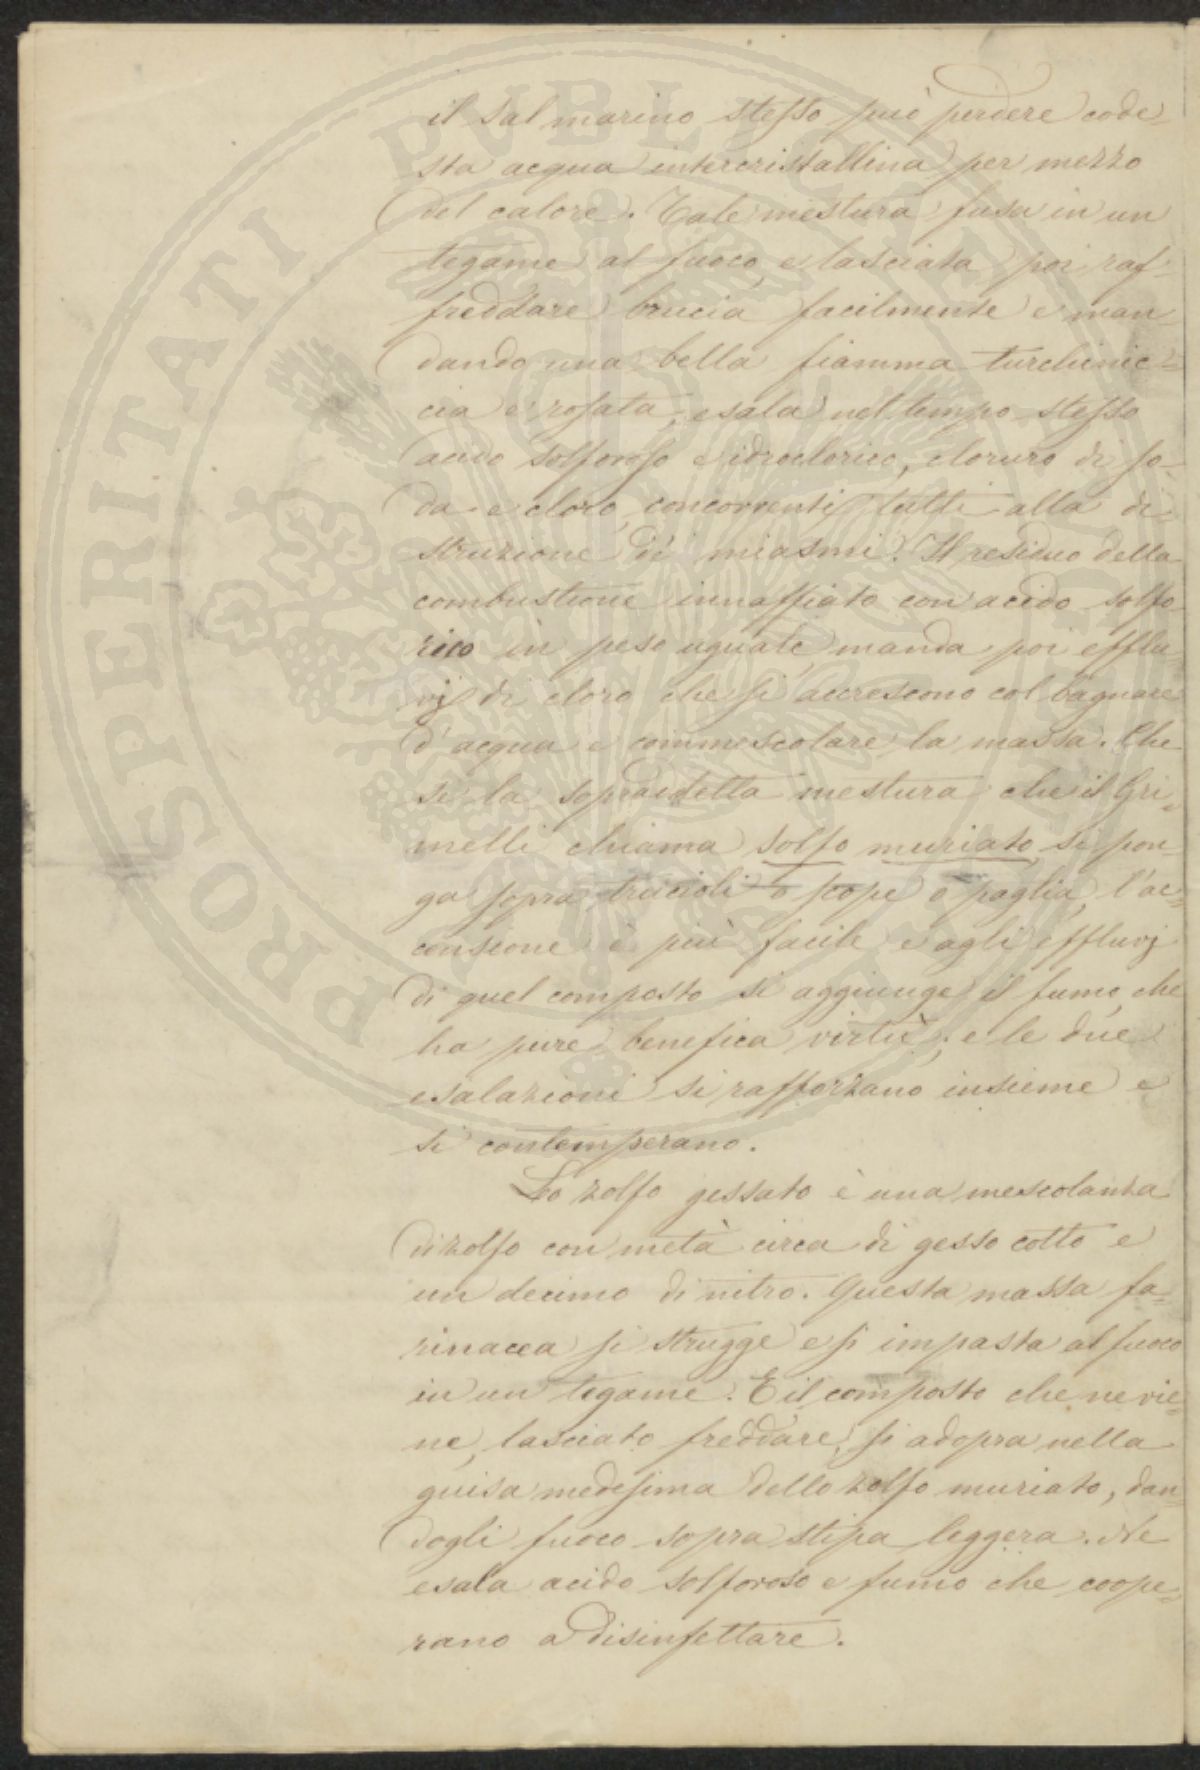 il sal marino stesso può perdere code-
sta acqua intercristallina per mezzo
del calore. Tale mestura fusa in un
tegame al fuoco, e lasciata poi raf-
freddare brucia facilmente e man-
dando una bella fiamma turchinic=
cia e rosata, esala nel tempo stesso
acido solforoso e idroclorico, cloruro di so-
da e cloro, concorrenti tutti alla di-
struzione di miasmi. Il residuo della
combustione innaffiato con acido solfo-
rico in peso uguale, manda poi efflu-
vj di cloro che si accrescono col bagnare
d'acqua e commescolare la massa. Che
se la sopraddetta mestura che il Gri=
melli chiama solfo muriato, si pon-
ga sopra trucioli o scope o paglia, l'ac=
censione è più facile e agli effluvj
di quel composto si aggiunge il fumo, che
ha pure benefica virtù; e le due
esalazioni si rafforzano insieme e
si contemperano.
Lo zolfo gessato è una mescolanza
di zolfo con metà circa di gesso cotto e
un decimo di nitro. Questa massa fa-
rinacea si strugge e si impasta al fuoco
in un tegame. E il composto che ne vie=
ne, lasciato freddare, si adopra nella
guisa medesima dello zolfo muriato, dan=
dogli fuoco sopra stipa leggera. Ne
esala acido solforoso e fumo che coope=
rano a disinfettare.
PROSPERITATI PVBLICAE